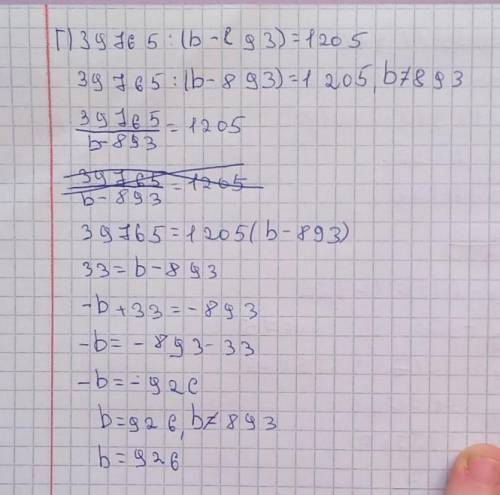 Г) 39765:(b-893)=1205
39765:(b-893)=1 205, b≠893
39765/b-893 = 1205
39765/b-893 = 1205
39765=1205(b-893)
33=b-893
-b+33=-893
-b=-893-33
-b=-926
b=926, b≠893
b=926